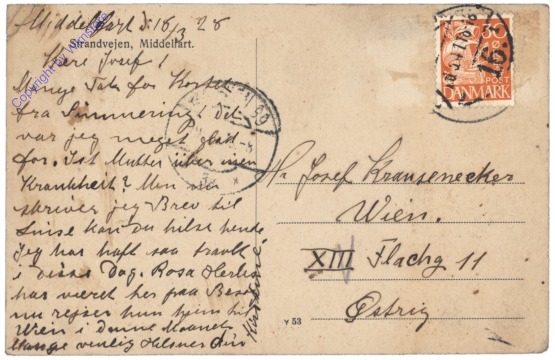 Middelfart d. 18/3 28
Strandvejen, Middelfart.
Kære Josef!
Mange Tak for Kortet
fra Simmering, det
var jeg meget glad
for. Ist Mutter über
Krankheit? Men
skriver jeg Brev til
kan du hilse hende
Jeg har haft saa travlt
i disse Dag. Rosa
har været her paa Besøg
nu rejser hun hjem til
Wien i denne Maaned
Mange venlig Hilsner din
Hr Josef Krausenecker
Wien.
XIII Flachg 11
Østrig
30
POST
DANMARK
Y 53